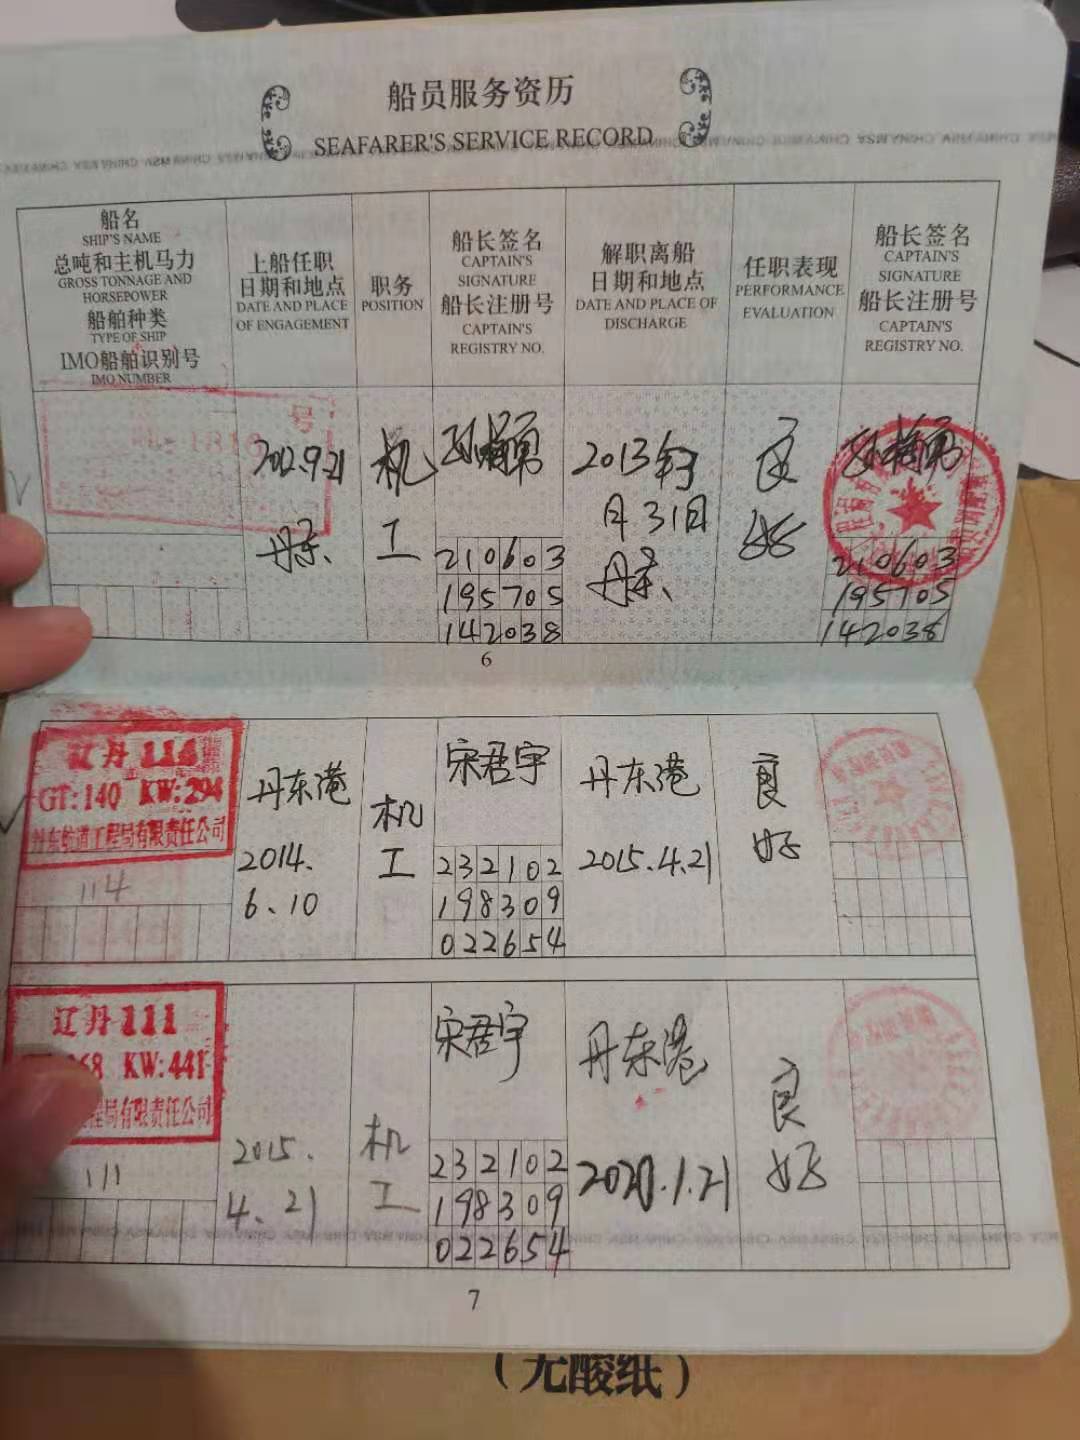 船员服务资历
SEAFARER'S SERVICE RECORD
船名
SHIP'S NAME
总吨和主机马力
GROSS TONNAGE AND
HORSEPOWER
船舶种类
TYPE OF SHIP
IMO船舶识别号
IMO NUMBER
上船任职
日期和地点
DATE AND PLACE
OF ENGAGEMENT
职务
POSITION
船长签名
CAPTAIN'S
SIGNATURE
船长注册号
CAPTAIN'S
REGISTRY NO.
解职离船
日期和地点
DATE AND PLACE OF
DISCHARGE
任职表现
PERFORMANCE
EVALUATION
船长签名
CAPTAIN'S
SIGNATURE
船长注册号
CAPTAIN'S
REGISTRY NO.
号
2012.9.21
丹东
机
工
210603
195705
142038
2013年
月31日
丹东
良
好
210603
195705
142038
6
辽丹114
GT:140 KW:294
丹东航道工程局有限责任公司
114
丹东港
2014.
6.10
机
工
宋君宇
232102
198309
022654
丹东港
2015.4.21
良
好
辽丹111
68 KW:441
程局有限责任公司
111
2015.
4.21
机
工
宋君宇
232102
198309
022654
丹东港
2020.1.21
良
好
7
(无酸纸)